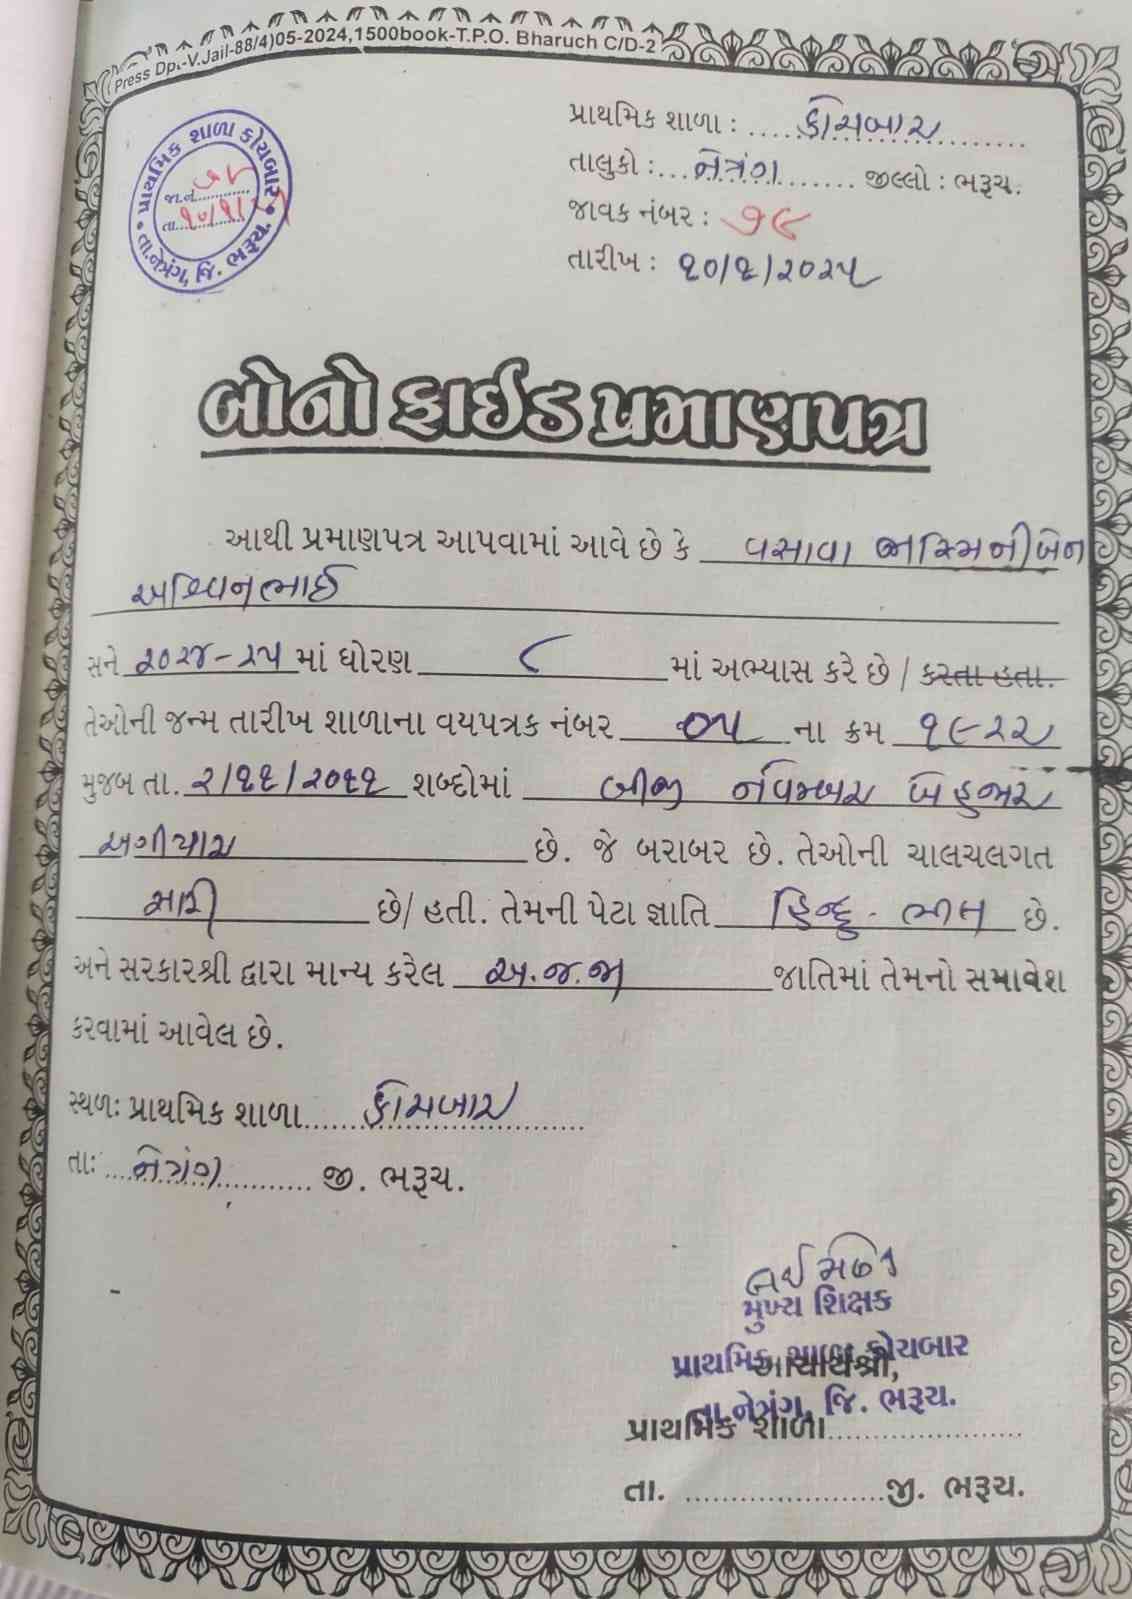 Press Dpt.-V.Jail-88/4)05-2024,1500book-T.P.O. Bharuch C/D-2
પ્રાથમિક શાળા કોચબાર
જા.નં.
તા. ૧૦/૧/૨૫
તા.નેત્રંગ, જિ. ભરૂચ
પ્રાથમિક શાળા : કોચબાર
તાલુકો : નેત્રંગ જીલ્લો : ભરૂચ.
જાવક નંબર : ૭૯
તારીખ : ૧૦/૧/૨૦૨૫
બોનો ફાઈડ પ્રમાણપત્ર
આથી પ્રમાણપત્ર આપવામાં આવે છે કે વસાવા અસ્મિનીબેન
અશ્વિનભાઈ
સને ૨૦૨૪-૨૫ માં ધોરણ ૮ માં અભ્યાસ કરે છે / કરતા હતા.
તેઓની જન્મ તારીખ શાળાના વયપત્રક નંબર ૦૫ ના ક્રમ ૧૯૨૨
મુજબ તા. ૨/૧૧/૨૦૧૧ શબ્દોમાં બીજી નવેમ્બર બે હજાર
અગીયાર છે. જે બરાબર છે. તેઓની ચાલચલગત
સારી છે/ હતી. તેમની પેટા જ્ઞાતિ હિન્દુ - ભીલ છે.
અને સરકારશ્રી દ્વારા માન્ય કરેલ અ.જ.જા જાતિમાં તેમનો સમાવેશ
કરવામાં આવેલ છે.
સ્થળ: પ્રાથમિક શાળા કોચબાર
તા: નેત્રંગ જી. ભરૂચ.
મુખ્ય શિક્ષક
પ્રાથમિક શાળા કોચબાર
આચાર્યશ્રી,
તા.નેત્રંગ, જિ. ભરૂચ.
પ્રાથમિક શાળા
તા. જી. ભરૂચ.